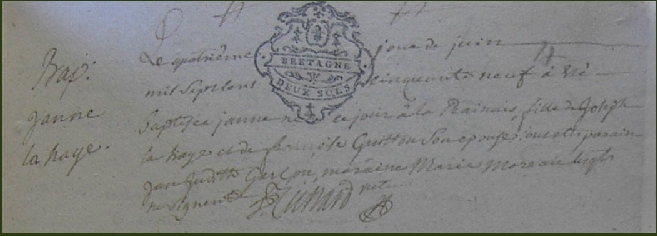 Bap:
janne
la haye.
Le quatrième jour de juin
BRETAGNE
mil sept cens cinquante neuf a été
DEUX SOLS
Baptisée janne née ce jour à la fille de joseph
la haye et de françoise Guitton son epouse, ont été parain
jan marainne Marie Moreau lesqls
ne signent